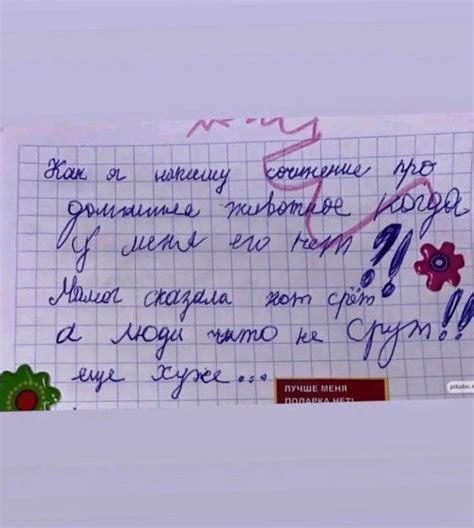 Как я напишу сочинение про
домашнее животное когда
у меня его нет?!!
Мама сказала кот срёт
а люди что не срут!!
еще хуже...
ЛУЧШЕ МЕНЯ
ПОДАРКА НЕТ!
pikabu.